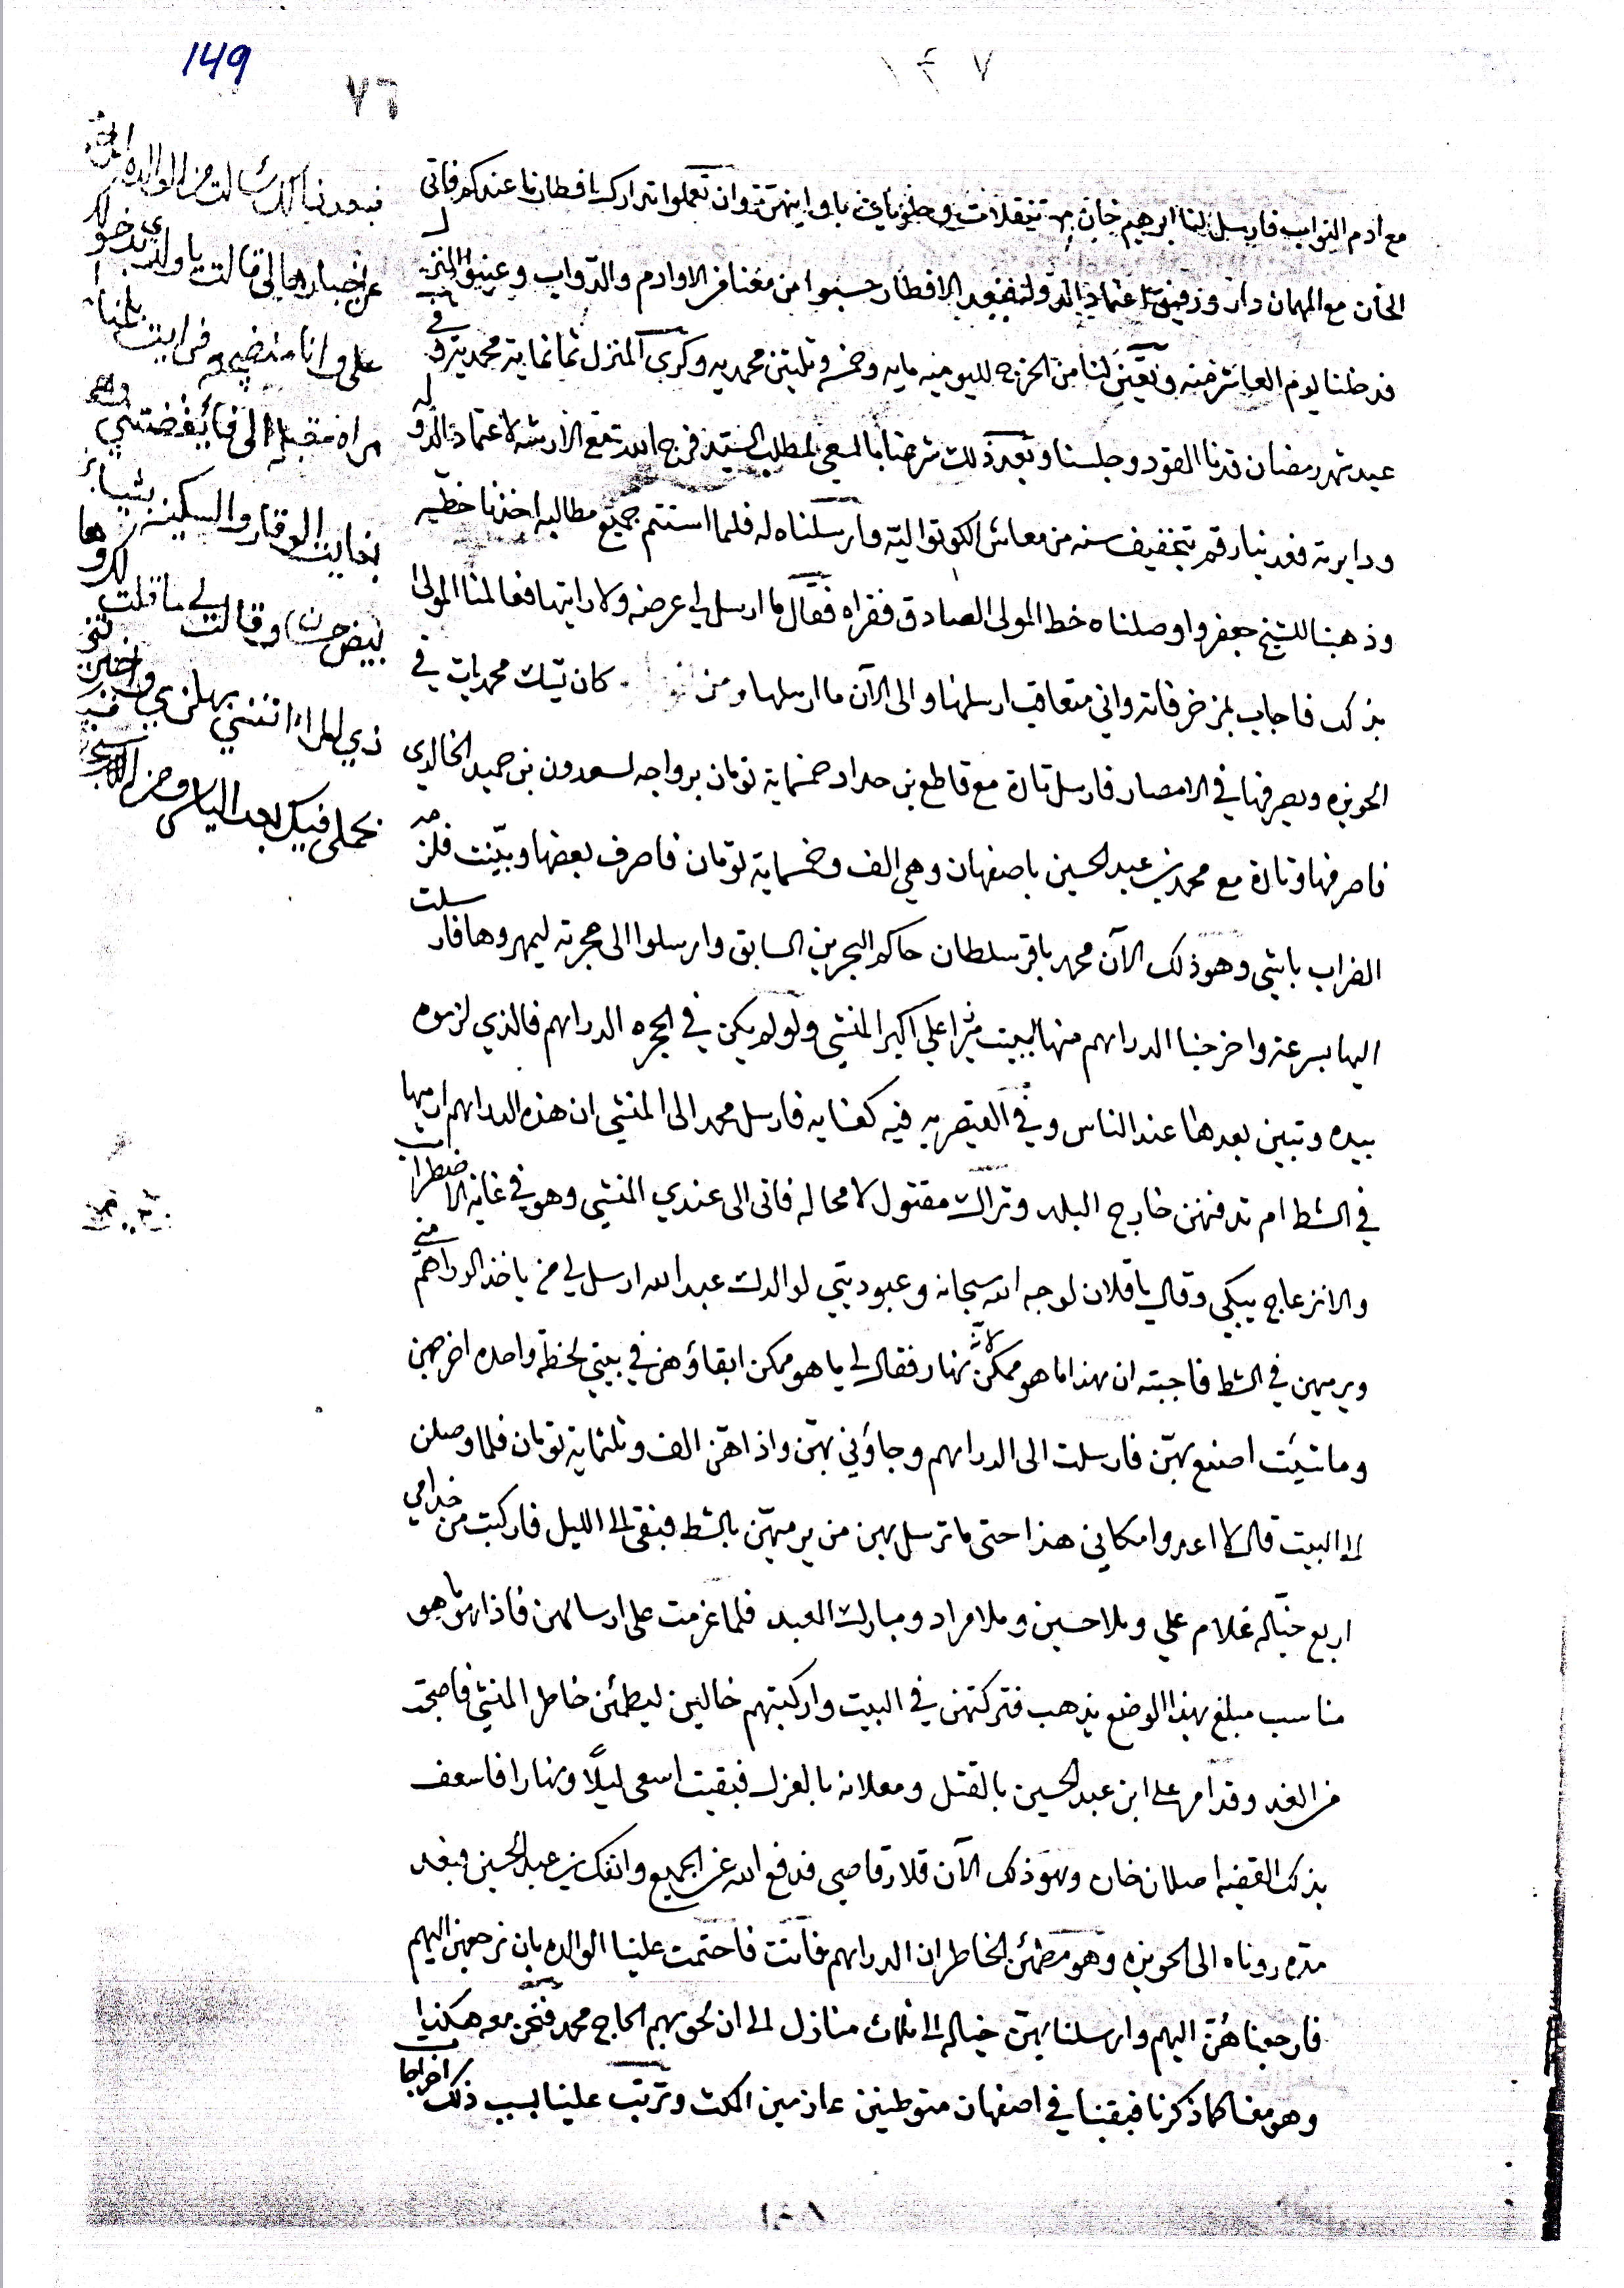 149
٧٦
١٤٧
مع ادم النواب فارسل لنا ابرهيم خان تنقلات وحلويات باواينهن وان تعملوا تدارك بافطارنا عندكم فاتى
الخان مع المهمان دار ورفيق اعتماد الدولة فبعد الافطار حسبوا من معنا فر الاوادم والدواب وعينوا المنزل
فدخلنا يوم العاشر منه وتعين لنا من الخرج لليوميه مايه وخمسه وثلثين محمديه وكرى المنزل ثمانمايه محمديه وفي
عيد شهر رمضان قدنا القود وجلسنا وبعد ذلك شرعنا بالسعي لمطلب السيد فرج الله مع الارشه لاعتماد الدوله
ودايرته فعدينا رقم بتخفيف سنه من معاش الكوتواليه وارسلناه له فلما استتم جميع مطالبه اخذنا خطيه
وذهبنا للشيخ جعفر واوصلناه خط المولى الصادق فقراه فقال ما ارسل لي عرضه ولا رايتها فعالمنا المولى
بذلك فاجاب بمزخرفاته واني متعاقب ارسلها والى الآن ما ارسلها ومن كان تيك محمديات في
الحويزه ويصرفها في الامصار فارسل تارة مع قاطع بن حداد خمسماية تومان برواجه لسعدون بن حميد الخالدي
فاصرفها وتارة مع محمد بن عبد الحسين باصفهان وهي الف وخمسماية تومان فاصرف بعضها وبينت فلزمه
الضراب باشي وهو ذلك الآن محمد باقر سلطان حاكم البحرين السابق وارسلوا الى حجرته ليمهروها فارسلت
اليها بسرعة واخرجنا الدراهم منها لبيت ميرزا علي اكبر المنشي ولو لم يكن في الحجره الدراهم فالذي لزموه
بيده وتبين بعدها عند الناس وفي القيصريه فيه كفايه فارسل محمد الى المنشي ان هذه الدراهم ارميها
في الشط ام تدفنهن خارج البلد وتراك مقتول لا محاله فاتى الى عندي المنشي وهو في غاية الاضطراب
والانزعاج يبكي وقال يا فلان لوجه الله سبحانه وعبوديتي لوالدك عبد الله ارسل لي من ياخذ الدراهم مني
ويرميهن في الشط فاجبته ان هذا ما هو ممكن لانه نهار فقال لي ما هو ممكن ابقاؤهن في بيتي لحظة واحده اخرجهن
وما شيئت اصنع بهن فارسلت الى الدراهم وجاؤني بهن واذا هن الف وثلثماية تومان فلما وصلن
الى البيت قال لا اعدوا مكاني هذا حتى ما ترسل بهن من يرميهن بالشط فبقى الى الليل فاركبت من خدامي
اربع خياله غلام علي وملا حسين وملا مراد ومبارك العبد فلما عزمت على ارسالهن فاذا هو ما هو
مناسب مبلغ بهذا الوضع يذهب فتركتهن في البيت واركبتهم خالين ليطمئن خاطر المنشي فاصبحت
من الغد وقد امر على ابن عبد الحسين بالقتل ومعلانه بالعزل فبقيت اسعى ليلًا ونهارا فاسعف
بذلك القضيه اصلان خان وهو ذلك الآن قلار قاصي فدفع الله عن الجميع وانفك بن عبد الحسين وبعد
مده روناه الى الحويزه وهو مطمئن الخاطر ان الدراهم فاتت فاحتمت علينا الوالده بان نرجعهن اليهم
فارجعناهن اليهم وارسلنا بهن خياله الى ثلاث منازل الى ان لحق بهم الحاج محمد فنحن معه هكذا
وهو معنا كما ذكرنا فبقينا في اصفهان متوطنين عازمين المكث وترتب علينا بسبب ذلك اخراجات
فبعد ذلك سالت من الوالده
عن اخبارها لي قالت يا ولدي دخلوا
علي وانا منضجعه فرايت
مراه مقبله الى فأيقضتني
بغايت الوقار والسكينه بثياب
بيض حسن وقالت لي ما قلت
ذي المراه اتتني بهلزي